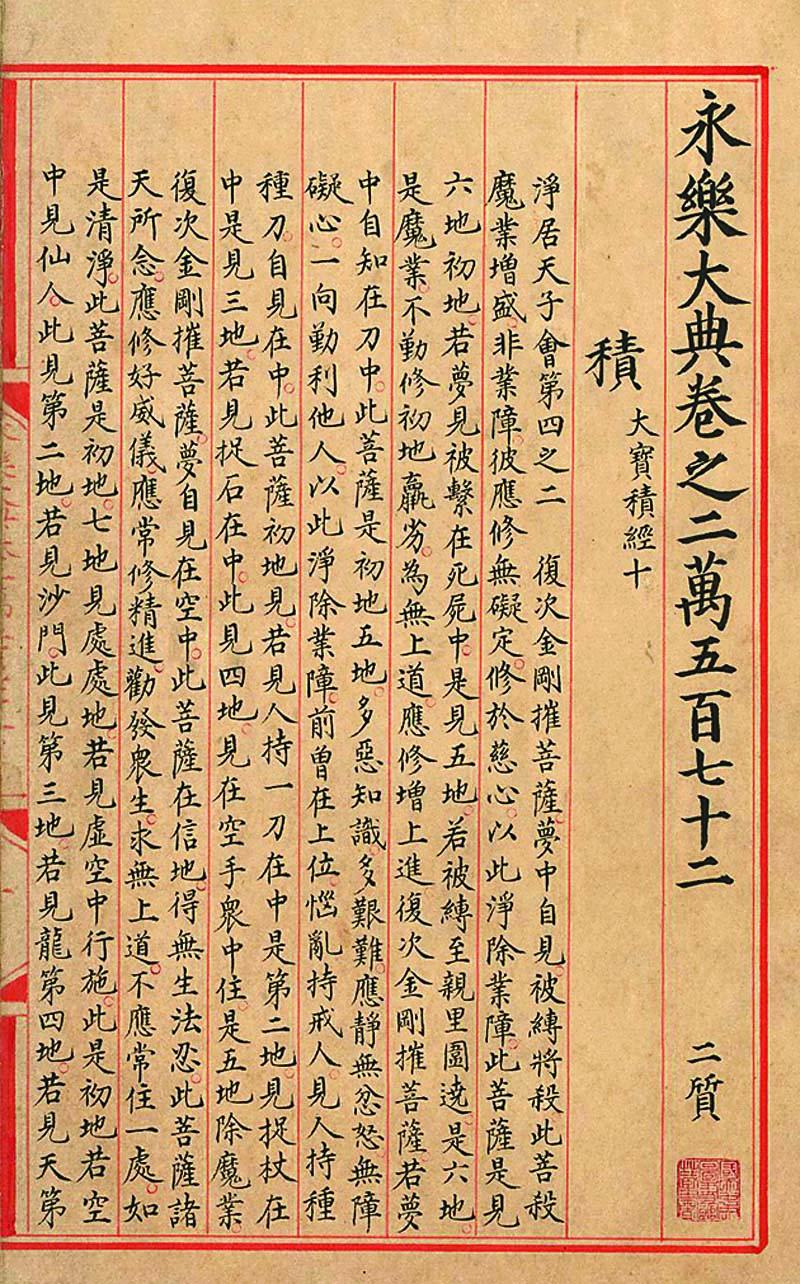 永樂大典卷之二萬五百七十二 二質
積 大寶積經十
淨居天子會第四之二 復次金剛摧菩薩。夢中自見。被縛將殺此菩殺
魔業增盛。非業障。彼應修無礙定。修於慈心。以此淨除業障。此菩薩是見
六地初地。若夢見被繫在死屍中。是見五地。若被縛至親里圍遶。是六地。
是魔業。不勤修初地羸劣。為無上道。應修增上進復次金剛摧菩薩。若夢
中自知在刀中。此菩薩是初地五地。多惡知識。多艱難。應靜無忿怒無障
礙心。一向勤利他人。以此淨除業障。前曾在上位。惱亂持戒人。見人持種
種刀。自見在中。此菩薩初地見。若見人持一刀在中是第二地。見捉杖在
中是見三地。若見捉石在中。此見四地。見在空手衆中住。是五地除魔業。
復次金剛摧菩薩。夢自見在空中。此菩薩在信地。得無生法忍。此菩薩諸
天所念。應修好威儀。應常修精進。勸發衆生。求無上道。不應常住一處。如
是清淨。此菩薩是初地。七地見處處地。若見虛空中行施。此是初地若空
中見仙人。此見第二地。若見沙門。此見第三地。若見龍第四地。若見天第